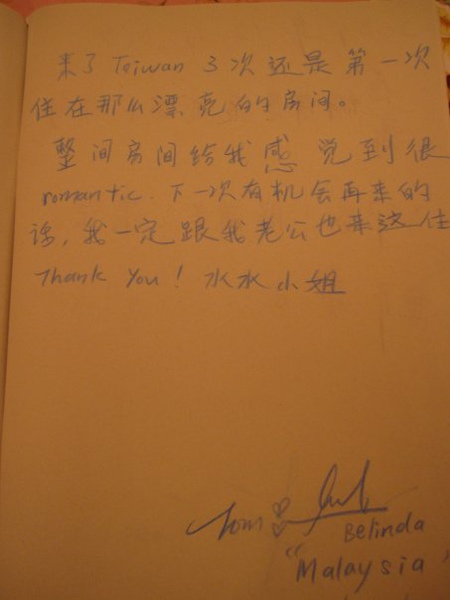 来了 Taiwan 3次还是第一次
住在那么漂亮的房间。
整间房间给我感觉到很
romantic. 下一次有机会再来的
话，我一定跟我老公也来这住
Thank You! 水水小姐
Belinda
"Malaysia"